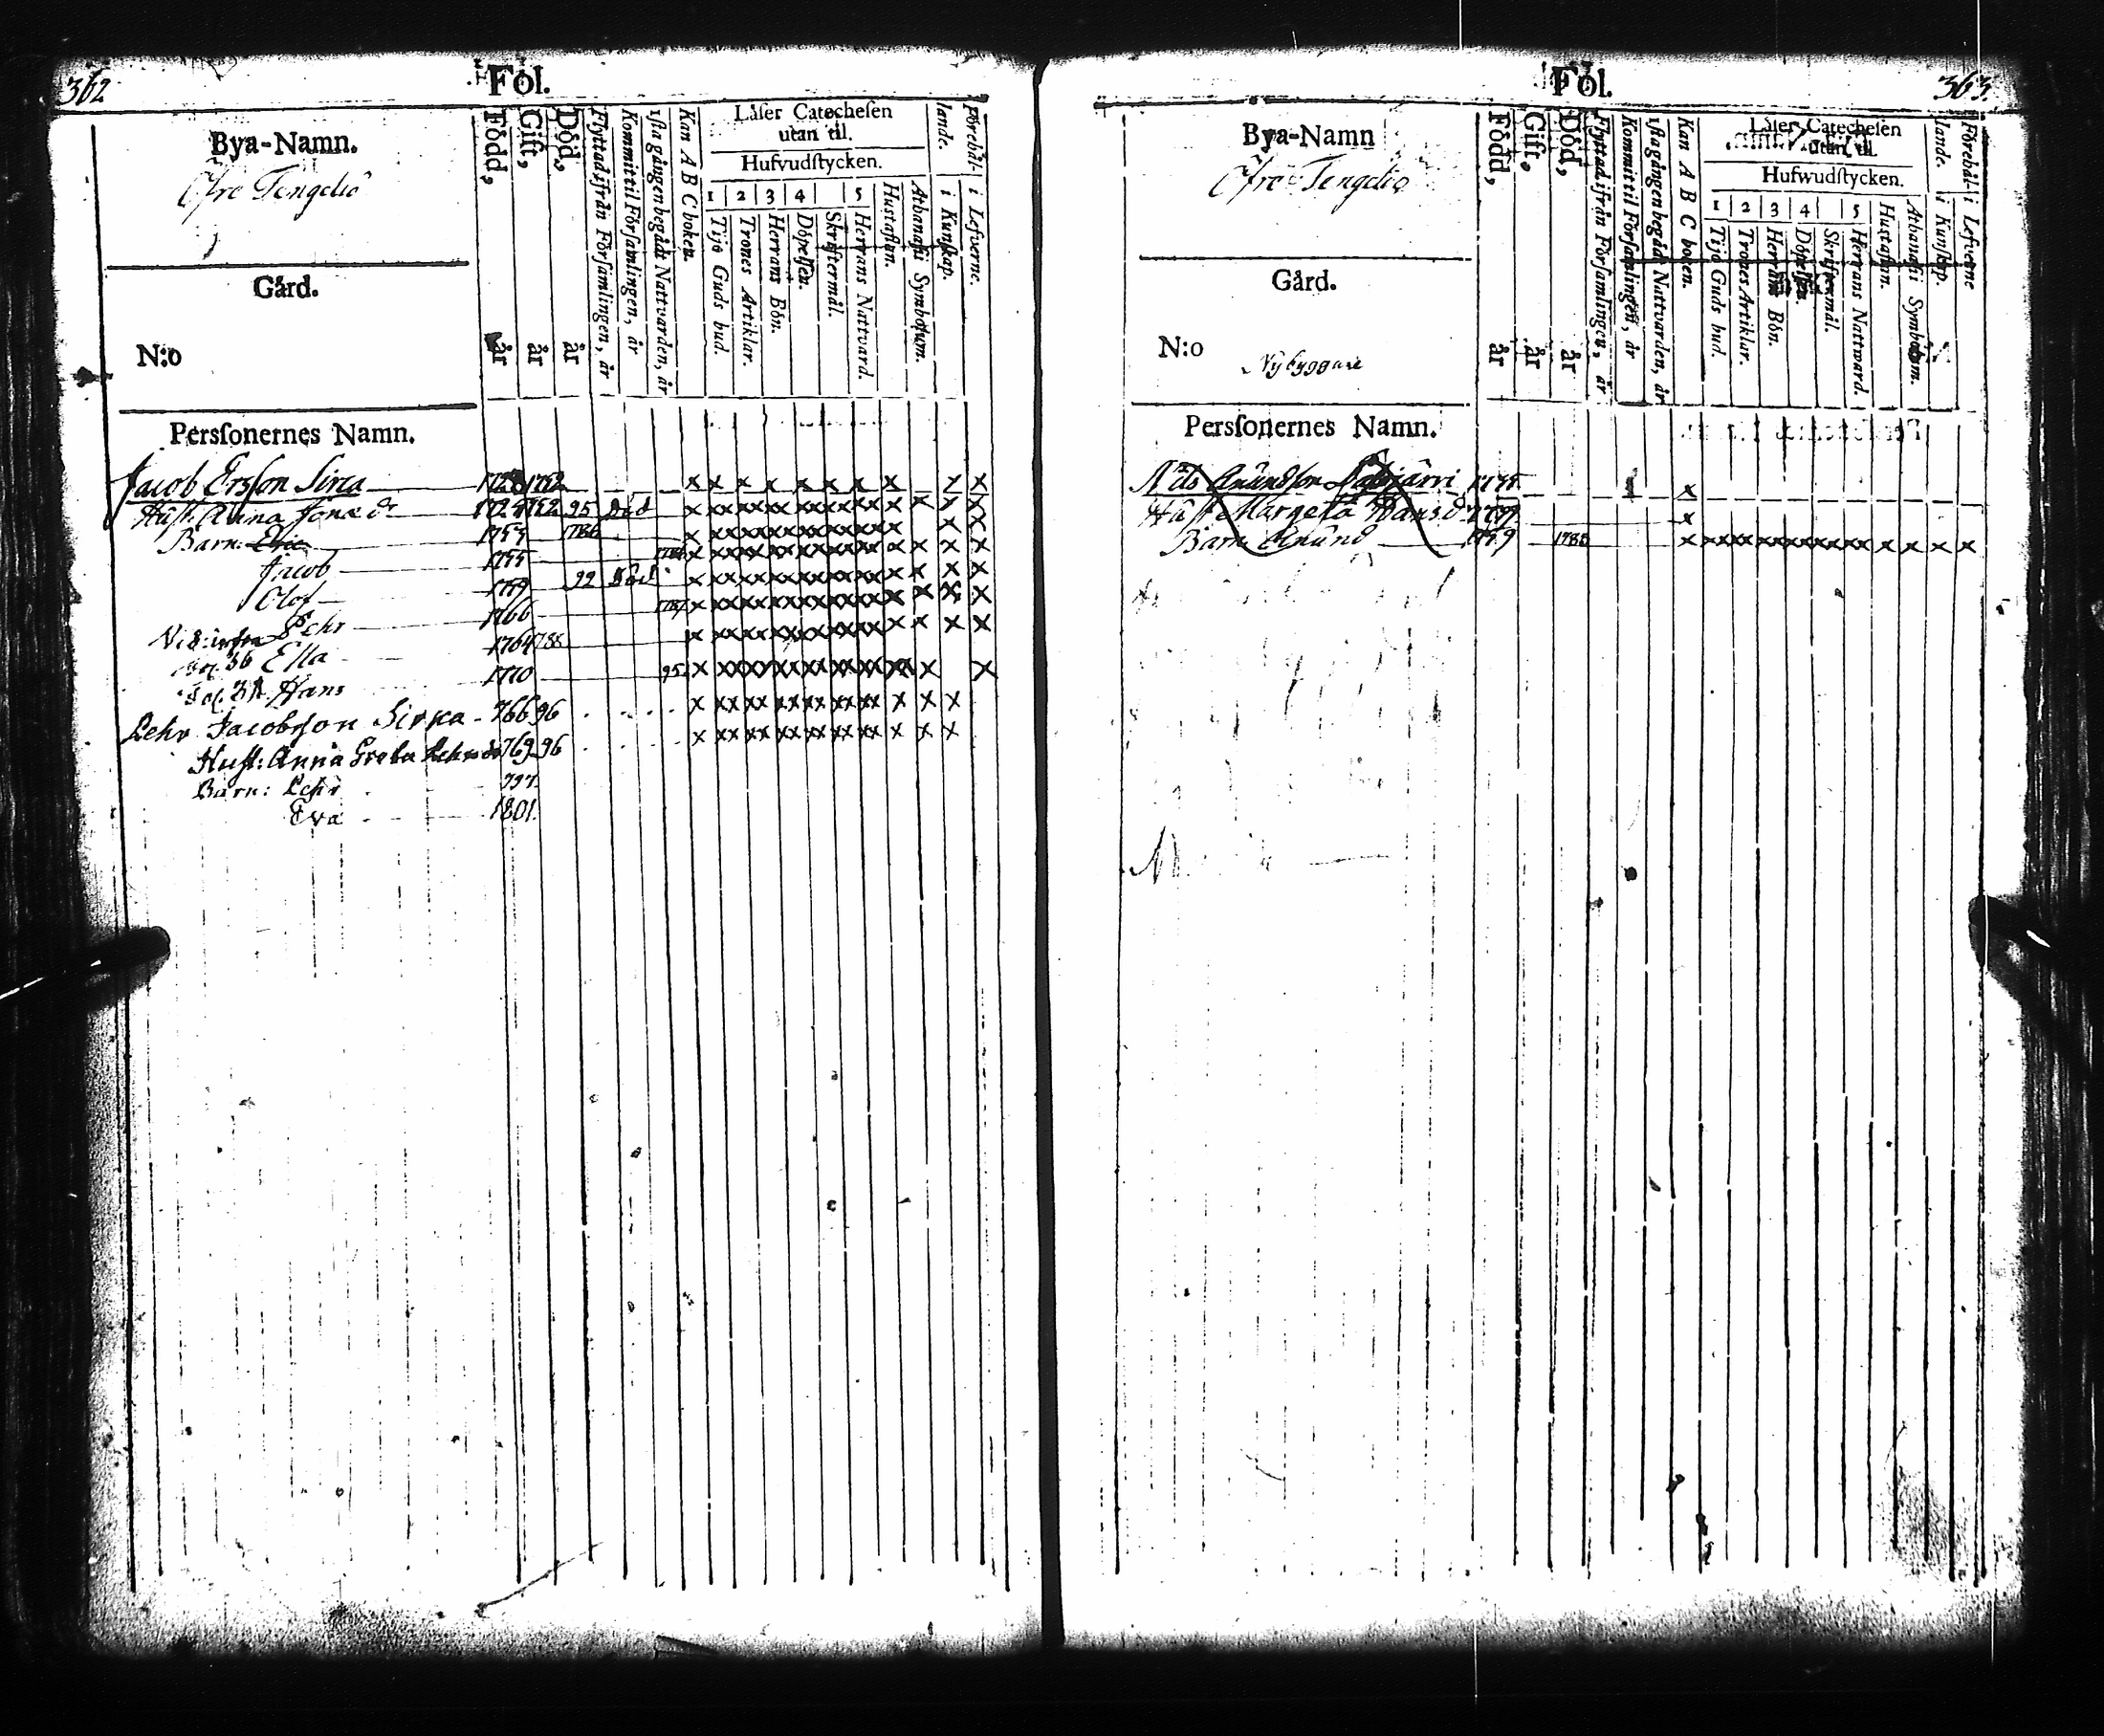 362
Fol.
Bya-Namn.
Öfre Tengeliö
Gård.
N:o
Född, år
Gift, år
Död, år
Flyttad ifrån Församlingen, år
Kommit til Församlingen, år
1sta gången begådt Nattvarden, år
Kan A B C boken.
Låser Catechesen
utan til.
Hufvudstycken.
1 2 3 4 5
Tijo Guds bud.
Trones Artiklar.
Herrans Bön.
Döpelsen.
Skriftermål.
Herrans Nattvard.
Hustaflan.
Athanasii Symbolum.
Förehållande.
i Kunskap.
i Lefverne.
Perssonernes Namn.
Jacob Ersson Sirca 1728 1752 x x x x x x x x x x
Hust. Anna Jonæ dr 1725 1752 95 Död
Barn: Eric 1755 1786
Jacob 1755
Olof 1759 92 Död
Vid: infra Pehr 1766 1787
Fol. 36 Ella 1764 1788
Fol. Hans 1770 95
Pehr Jacobsson Sirka 766 96
Hust: Anna Greta Pehrs dr 769 96
Barn: Pehr 797
Eva 1801
Fol.
363.
Bya-Namn
Öfre Tengeliö
Gård.
N:o
Nybyggare
Född, år
Gift, år
Död, år
Flyttad ifrån Församlingen, år
Kommit til Församlingen, år
1sta gången begådt Nattvarden, år
Kan A B C bocen.
Låser Catechesen
utan til.
Hufwudstycken.
1 2 3 4 5
Tijo Guds bud.
Trones Artiklar.
Herrans Bön.
Döpelsen.
Skriftermål.
Herrans Nattward.
Hustaflan.
Athanasii Symbolum.
Förehållande.
i Kunskap.
i Lefverne
Perssonernes Namn.
Nils Anundsson x
Hust. Margeta Hans d x
Barn Anund 1785